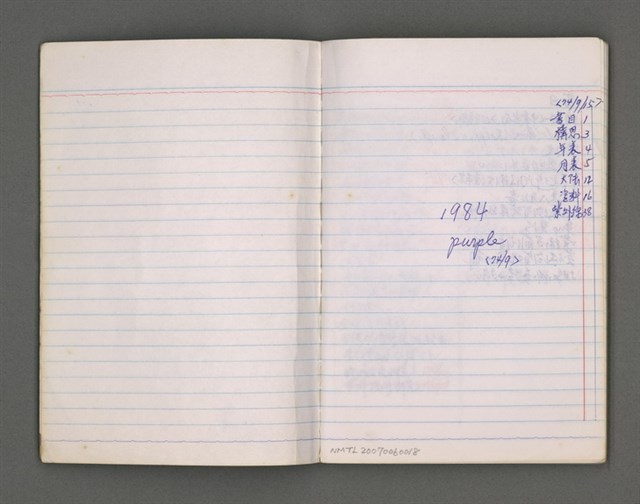 <74/9/15>
書目 1
構思 3
年表 4
月表 5
大陸 12
資料 16
紫外線 38
1984
purple
<74/9>
NMTL20070060018